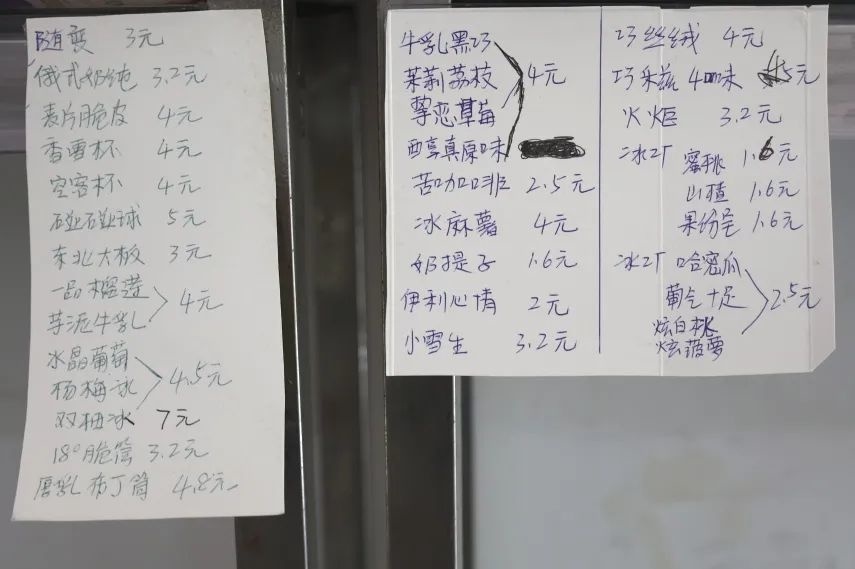 随变 3元
俄式奶纯 3.2元
麦片脆皮 4元
香雪杯 4元
空客杯 4元
碰碰球 5元
东北大板 3元
一品榴莲
芋泥牛乳 4元
水晶葡萄
杨梅冰 4.5元
双柚冰 7元
18°脆筒 3.2元
厚乳布丁筒 4.8元
牛乳黑巧
茉莉荔枝 4元
挚恋草莓
醇真原味
苦咖啡 2.5元
冰麻薯 4元
奶提子 1.6元
伊利心情 2元
小雪生 3.2元
巧丝绒 4元
巧乐兹 4口味 5元
火炬 3.2元
冰工厂 蜜桃 1.6元
山楂 1.6元
果缤呈 1.6元
冰工厂 哈密瓜
葡气十足 2.5元
炫白桃
炫菠萝